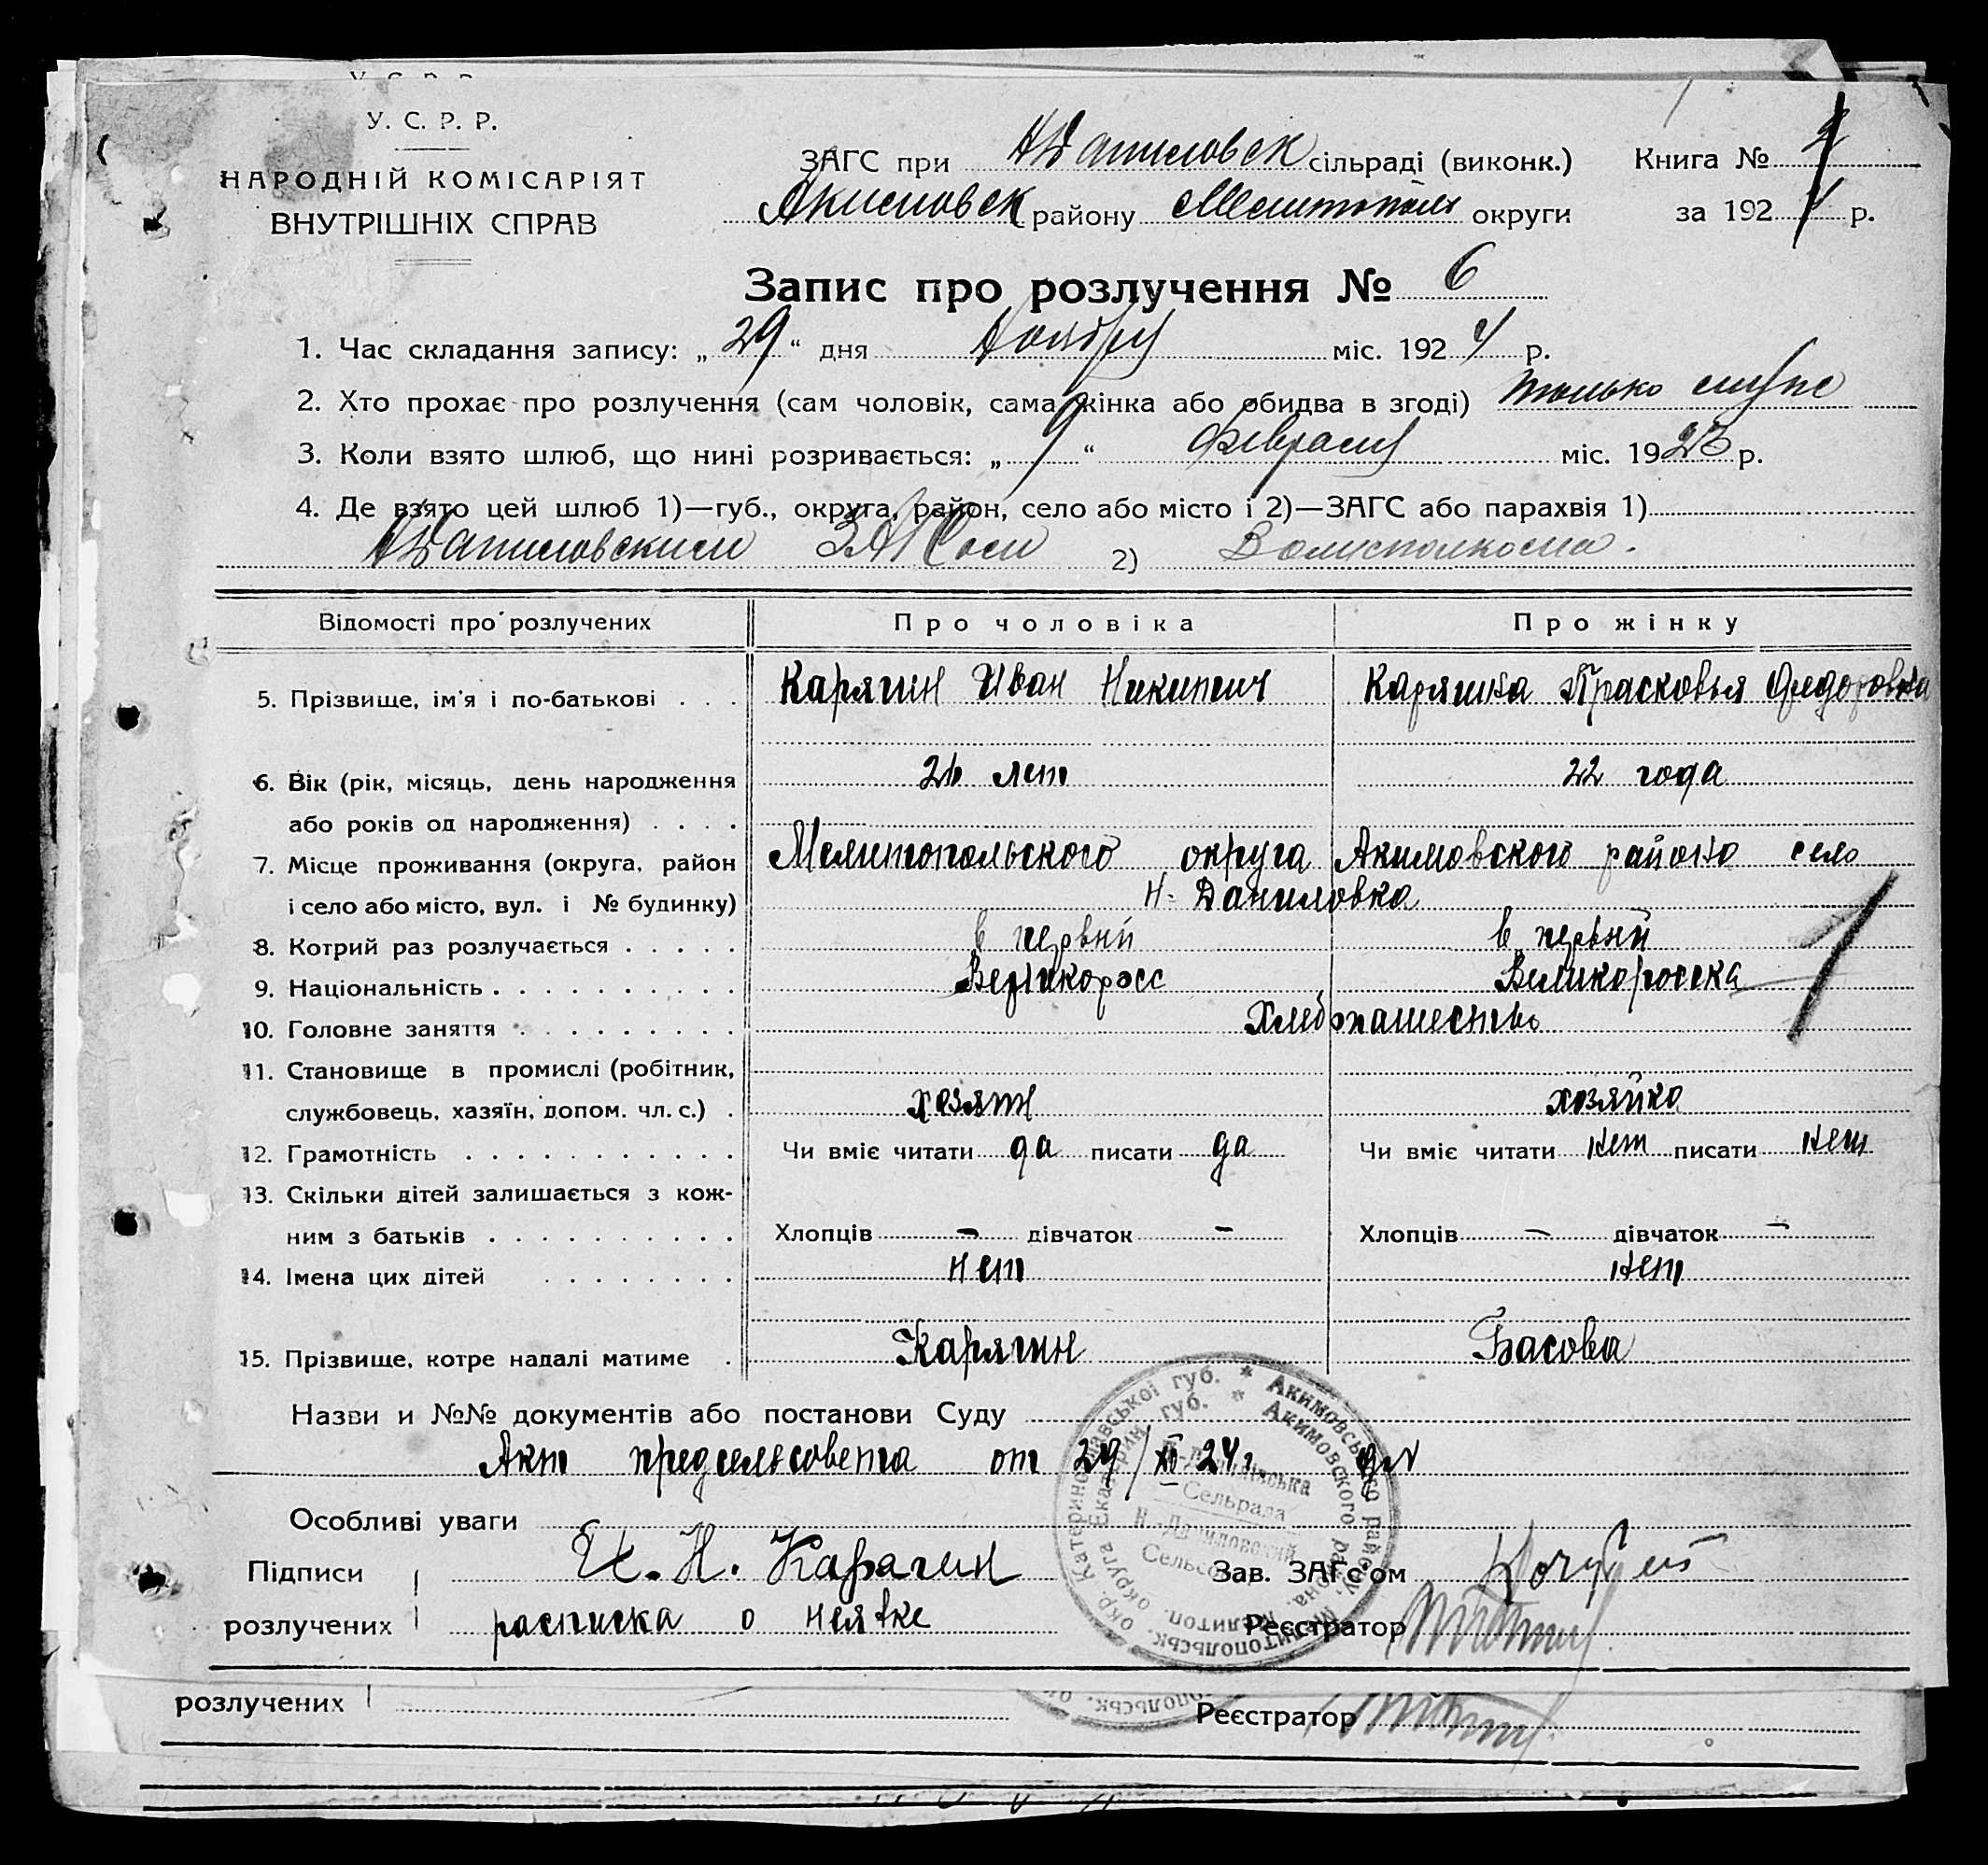 У. С. Р. Р.
НАРОДНІЙ КОМІСАРІЯТ
ВНУТРІШНІХ СПРАВ
ЗАГС при НДаниловск сільраді (виконк.) Книга №
Акимовск району Мелитополь округи за 1924 р.
Запис про розлучення № 6
1. Час складання запису: „29“ дня Ноября міс. 1924 р.
2. Хто прохає про розлучення (сам чоловік, сама жінка або обидва в згоді) только муж
3. Коли взято шлюб, що нині розривається: „9“ Февраля міс. 1923 р.
4. Де взято цей шлюб 1)—губ., округа, район, село або місто і 2)—ЗАГС або парахвія 1)
НДаниловским ЗАГСом 2) Волисполкома.
Відомості про розлучених Про чоловіка Про жінку
5. Прізвище, ім'я і по-батькові . . . Карягин Иван Никитич Карягина Прасковья Федоровна
6. Вік (рік, місяць, день народження 26 лет 22 года
або років од народження) . . . .
7. Місце проживання (округа, район Мелитопольского округа Акимовского района село
і село або місто, вул. і № будинку) Н-Даниловка
8. Котрий раз розлучається . . . . . в первый в первый
9. Національність . . . . . . . . . . Великоросс Великоросска
10. Головне заняття . . . . . . . . . Хлебопашество
11. Становище в промислі (робітник,
службовець, хазяїн, допом. чл. с.) . хозяин хозяйка
12. Грамотність . . . . . . . . . . . Чи вміє читати да писати да Чи вміє читати нет писати нет
13. Скільки дітей залишається з кож-
ним з батьків . . . . . . . . . . Хлопців – дівчаток – Хлопців – дівчаток –
14. Імена цих дітей . . . . . . . нет нет
15. Прізвище, котре надалі матиме . Карягин Басова
Назви и №№ документів або постанови Суду
Акт предсельсовета от 29/XI 24 г
Особливі уваги
Підписи И. Н. Карягин Зав. ЗАГс'ом
розлучених расписка о неявке Реєстратор
Катеринославської губ. * Акимовського району, Мелітопольськ. окр.
Екатерин губ. * Акимовского района, Мелитоп. округа
Сельрада
Н.-Даниловский
розлучених Реєстратор